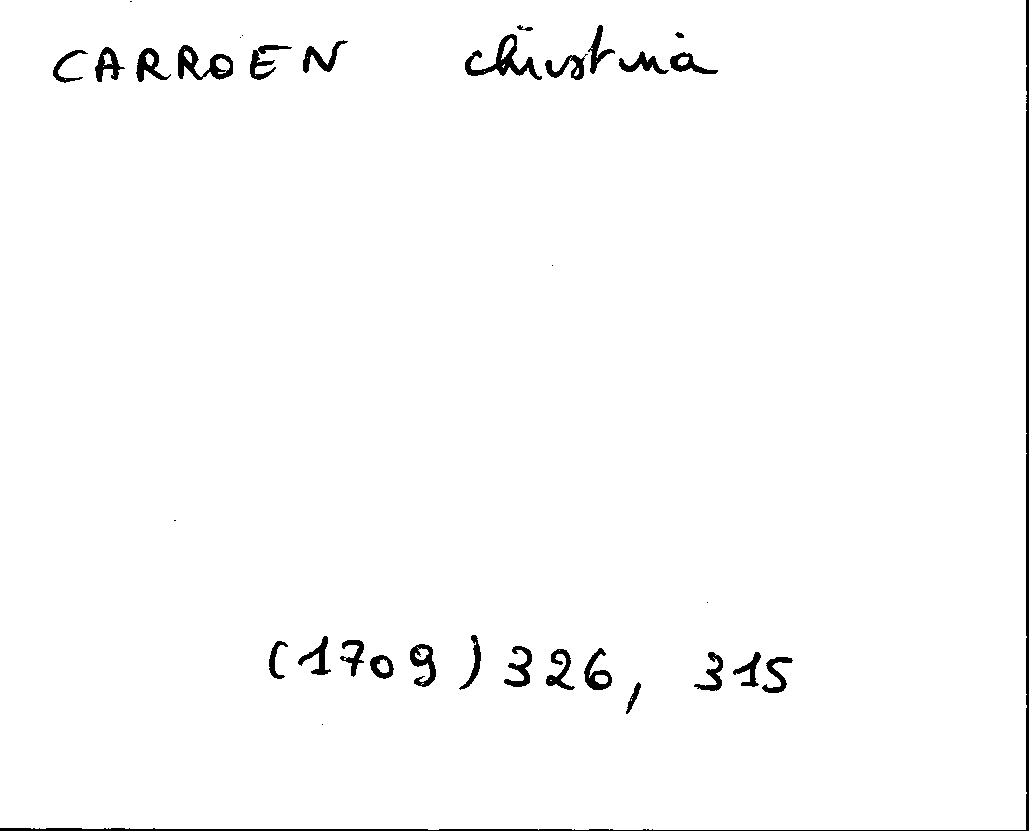 CARROEN christina
(1709) 326, 315